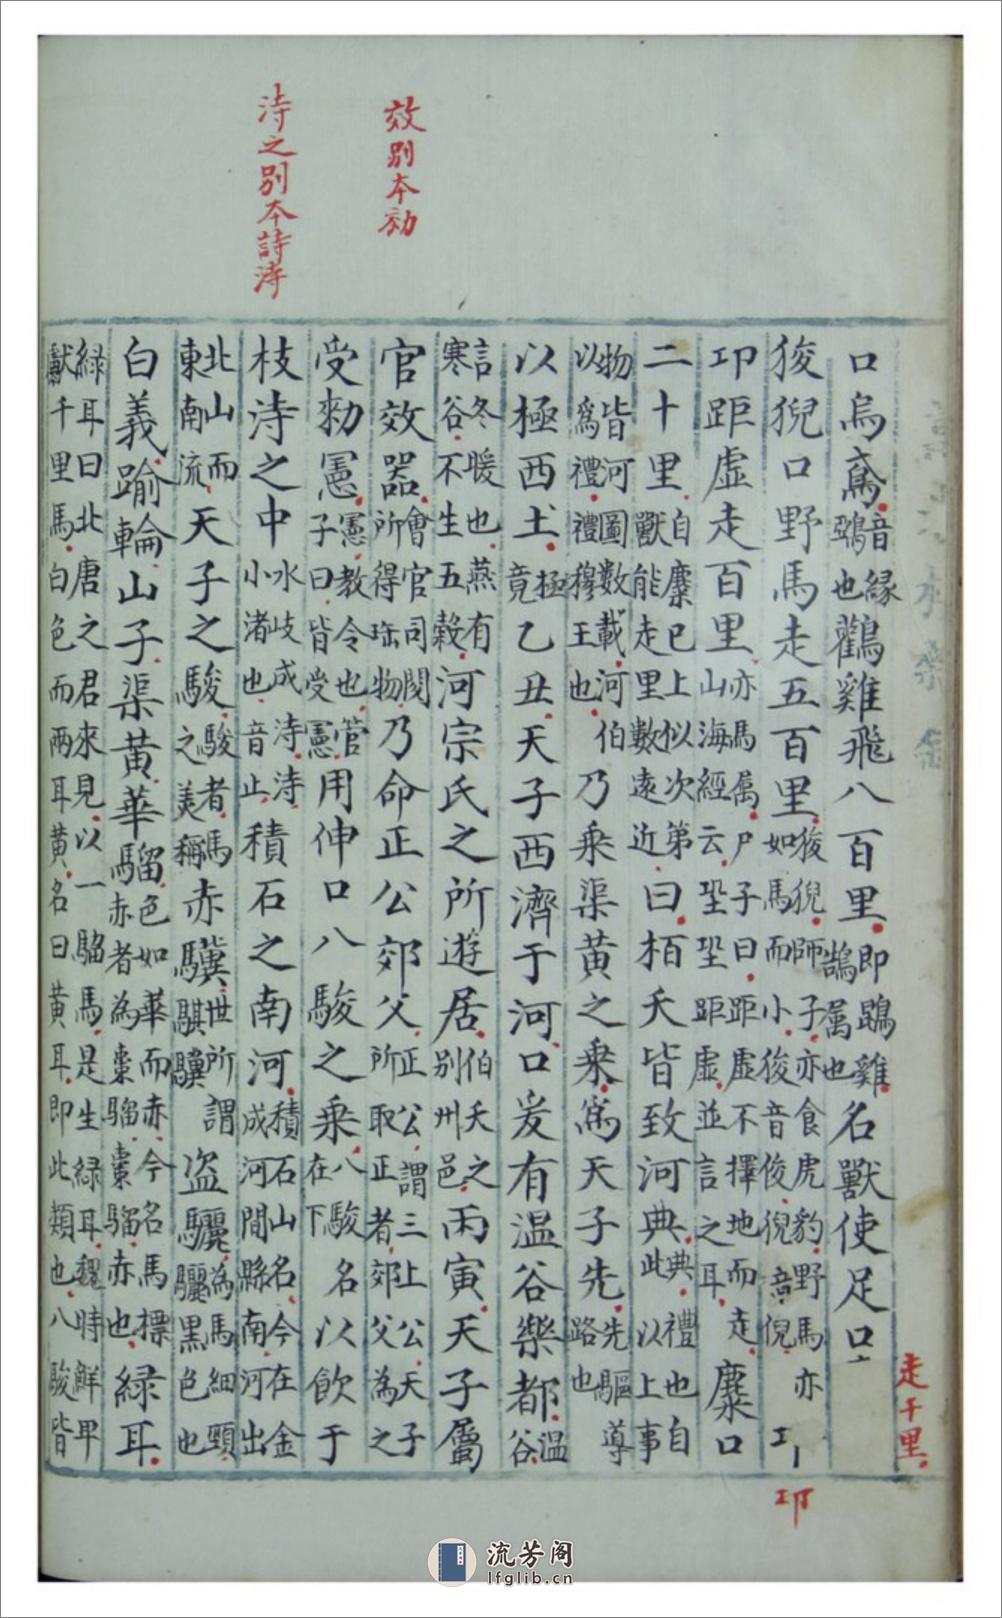 走千里
口烏鳶音緣鵶也鸛雞飛八百里即鵾雞鵠屬也名獸使足口
狻猊口野馬走五百里狻猊師子亦食虎豹野馬亦如馬而小狻音俊猊音倪卭
卭距虛走百里亦馬屬尸子曰距虛不擇地而走山海經云蛩蛩距虛並言之耳麋口
二十里自麋已上似次第獸能走里數遠近曰栢夭皆致河典典禮也自此以上事
物皆河圖數載河伯以爲禮禮穆王也乃乘渠黃之乘爲天子先先驅導路也
以極西土極竟乙丑天子西濟于河口爰有溫谷樂都溫谷
言冬暖也燕有寒谷不生五穀河宗氏之所遊居伯夭之別州邑丙寅天子屬
官效器會官司閱所得珤物乃命正公郊父正公謂三上公天子所取正者郊父為之
受勑憲憲教令也管子曰皆受憲用伸口八駿之乘八駿名在下以飲于
枝洔之中水岐成洔洔小渚也音止積石之南河積石山名今在金成河間縣南河出
北山而東南流天子之駿駿者馬之美稱赤驥世所謂騏驥盜驪為馬細頸驪黑色也
白義踰輪山子渠黃華騮色如華而赤今名馬標赤者為棗騮棗騮赤也綠耳
綠耳曰北唐之君來見以一騮馬是生綠耳魏時鮮卑獻千里馬白色而兩耳黃名曰黃耳即此類也八駿皆
效別本効
洔之別本詩洔
卭
流芳阁
lfglib.cn